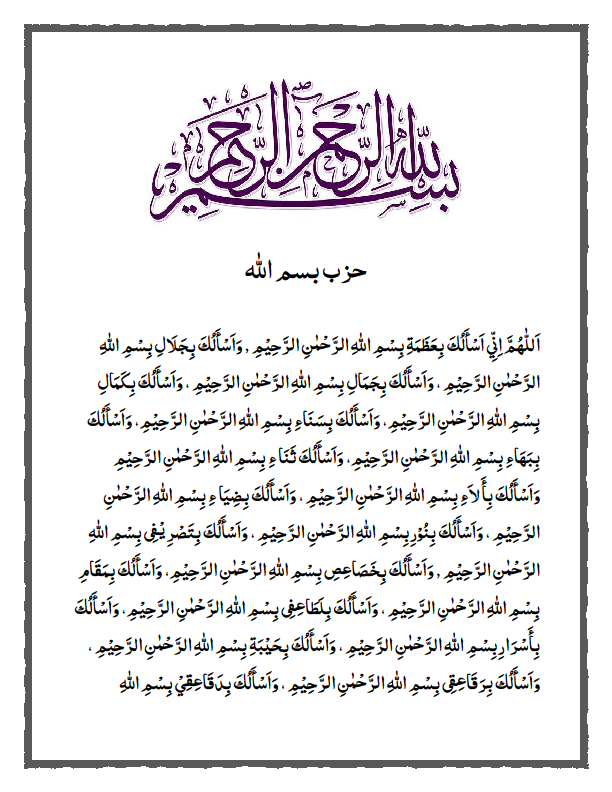 بسم الله الرحمن الرحيم
حزب بسم الله
اَللّٰهُمَّ اِنِّيْ اَسْأَلُكَ بِعَظَمَةِ بِسْمِ اللهِ الرَّحْمٰنِ الرَّحِيْمِ , وَاَسْأَلُكَ بِجَلَالِ بِسْمِ اللهِ
الرَّحْمٰنِ الرَّحِيْمِ ، وَاَسْأَلُكَ بِجَمَالِ بِسْمِ اللهِ الرَّحْمٰنِ الرَّحِيْمِ ، وَاَسْأَلُكَ بِكَمَالِ
بِسْمِ اللهِ الرَّحْمٰنِ الرَّحِيْمِ، وَاَسْأَلُكَ بِسَنَاءِ بِسْمِ اللهِ الرَّحْمٰنِ الرَّحِيْمِ، وَاَسْأَلُكَ
بِبَهَاءِ بِسْمِ اللهِ الرَّحْمٰنِ الرَّحِيْمِ، وَاَسْأَلُكَ ثَنَاءِ بِسْمِ اللهِ الرَّحْمٰنِ الرَّحِيْمِ
وَاَسْأَلُكَ بِأَلَاءِ بِسْمِ اللهِ الرَّحْمٰنِ الرَّحِيْمِ ، وَاَسْأَلُكَ بِضِيَاءِ بِسْمِ اللهِ الرَّحْمٰنِ
الرَّحِيْمِ ، وَاَسْأَلُكَ بِنُوْرِبِسْمِ اللهِ الرَّحْمٰنِ الرَّحِيْمِ ، وَاَسْأَلُكَ بِتَصْرِيْفِى بِسْمِ اللهِ
الرَّحْمٰنِ الرَّحِيْمِ , وَاَسْأَلُكَ بِخَصَاعِصِ بِسْمِ اللهِ الرَّحْمٰنِ الرَّحِيْمِ، وَاَسْأَلُكَ بِمَقَامِ
بِسْمِ اللهِ الرَّحْمٰنِ الرَّحِيْمِ ، وَاَسْأَلُكَ بِلَطَاعِفِى بِسْمِ اللهِ الرَّحْمٰنِ الرَّحِيْمِ، وَاَسْأَلُكَ
بِأَسْرَارِبِسْمِ اللهِ الرَّحْمٰنِ الرَّحِيْمِ ، وَاَسْأَلُكَ بِحَيْبَةِ بِسْمِ اللهِ الرَّحْمٰنِ الرَّحِيْمِ ،
وَاَسْأَلُكَ بِرَقَاعِقِى بِسْمِ اللهِ الرَّحْمٰنِ الرَّحِيْمِ ، وَاَسْأَلُكَ بِدَقَاعِقِيْ بِسْمِ اللهِ